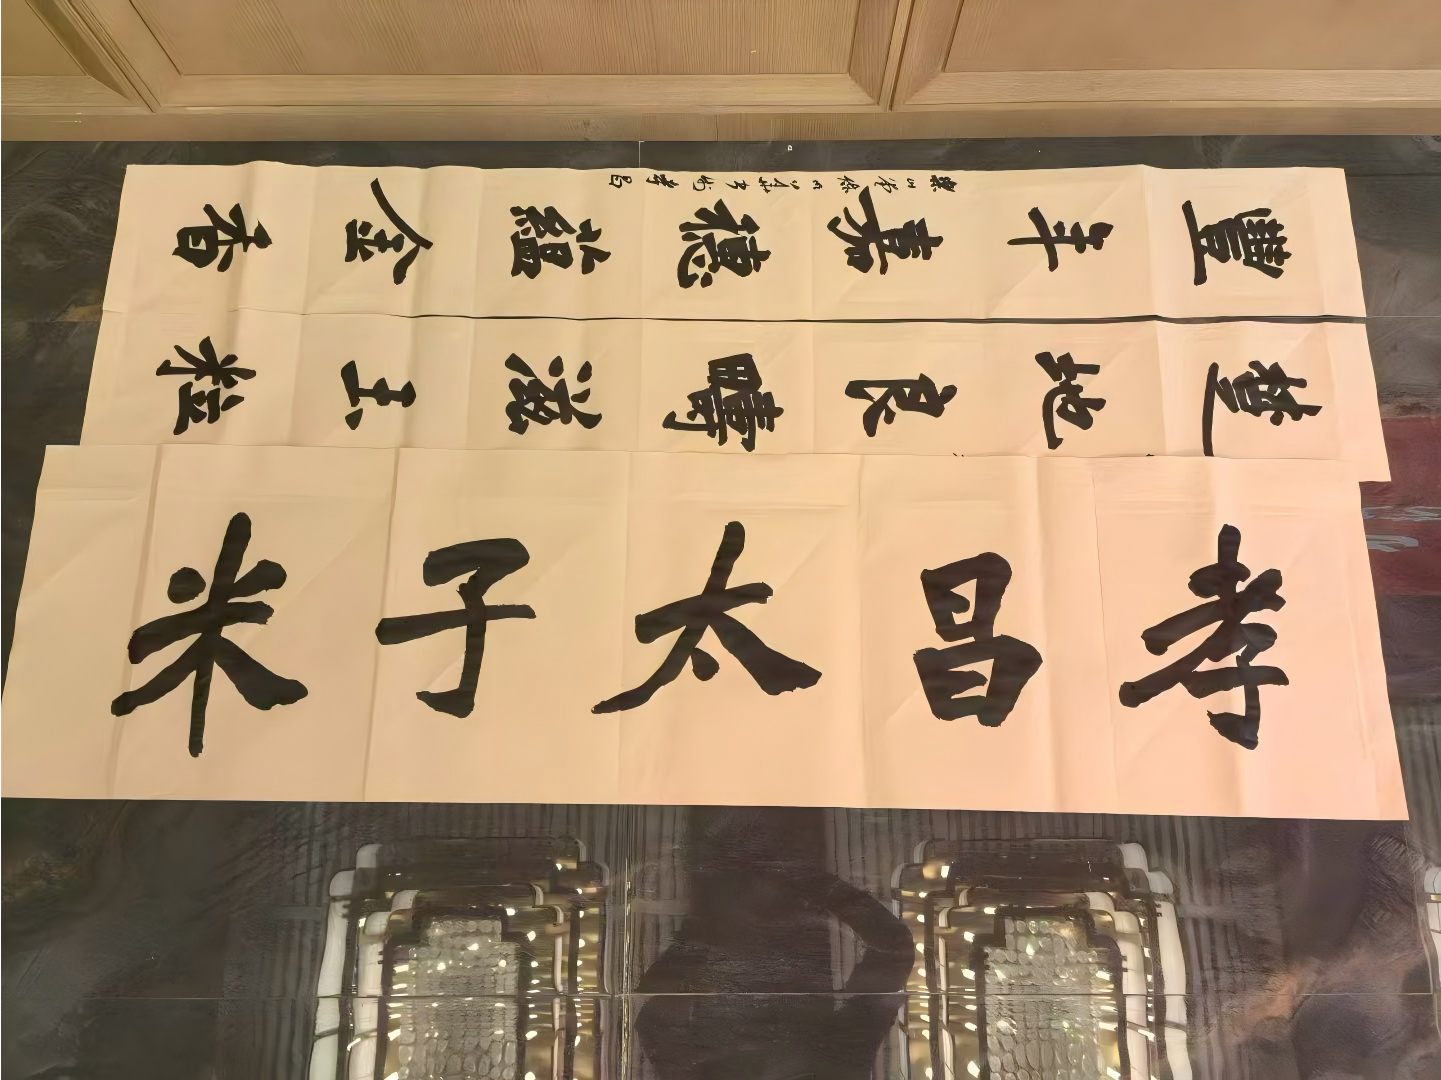 豐年嘉穗蘊金香
楚地良疇滋玉粒
孝昌太子米